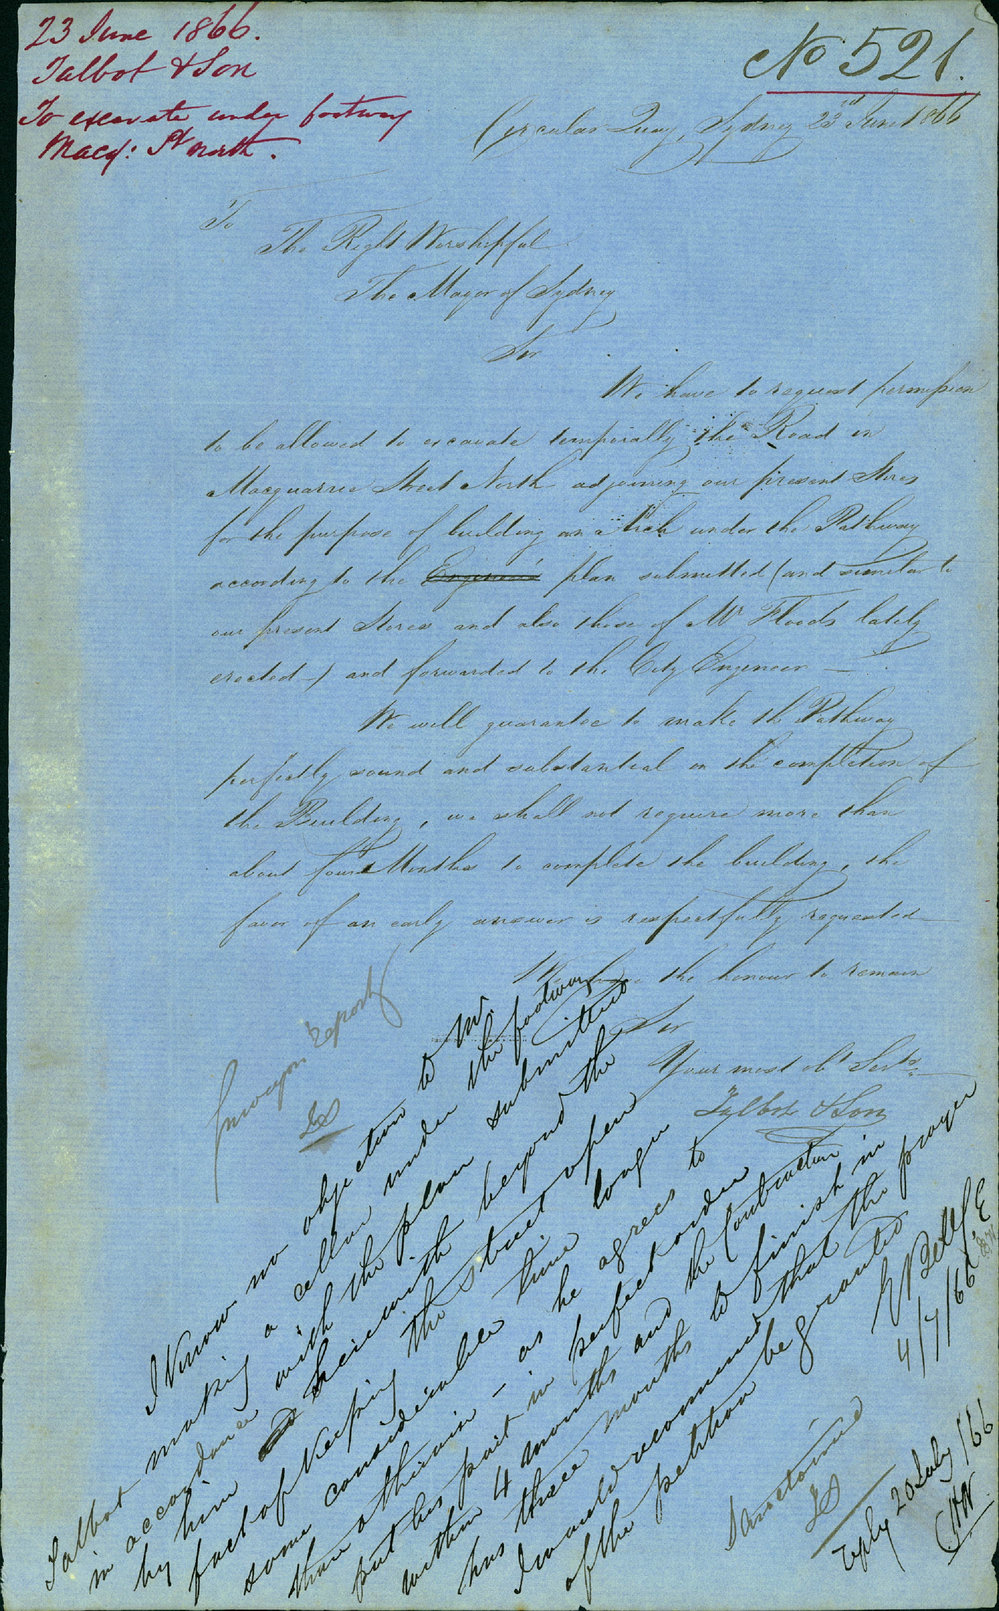 23 June 1866.
Talbot & Son
To excavate under footway
Macq: St north.
No 521.
Circular Quay Sydney 23rd June 1866
To
The Right Worshipful
The Mayor of Sydney
Sir
We have to request permission
to be allowed to excavate temporally the Road in
Macquarrie Street North adjoining our present Stores
for the purpose of building an Arch under the Pathway
according to the Engineers plan submitted (and similar to
our present Stores and also those of Mr Floods lately
erected) and forwarded to the City Engineer —
We will guarantee to make the Pathway
perfectly sound and substantial on the completion of
the Building, we shall not require more than
about four Months to complete the building, the
favor of an early answer is respectfully requested
We have the honour to remain
Sir
Your most obt Servts
Talbot & Son
report
I know no objection to Mr.
Talbot making a cellar under the footway
in accordance with the plan submitted
by him herewith beyond the
fact of keeping the street open
some considerable time longer
than otherwise – as he agrees to
put his part in perfect order
within 4 months and the Contractor
has three months to finish in
I would recommend that the prayer
of the petition be granted
E Bell C E
4/7/66
Sanctioned
Reply 20 July /66